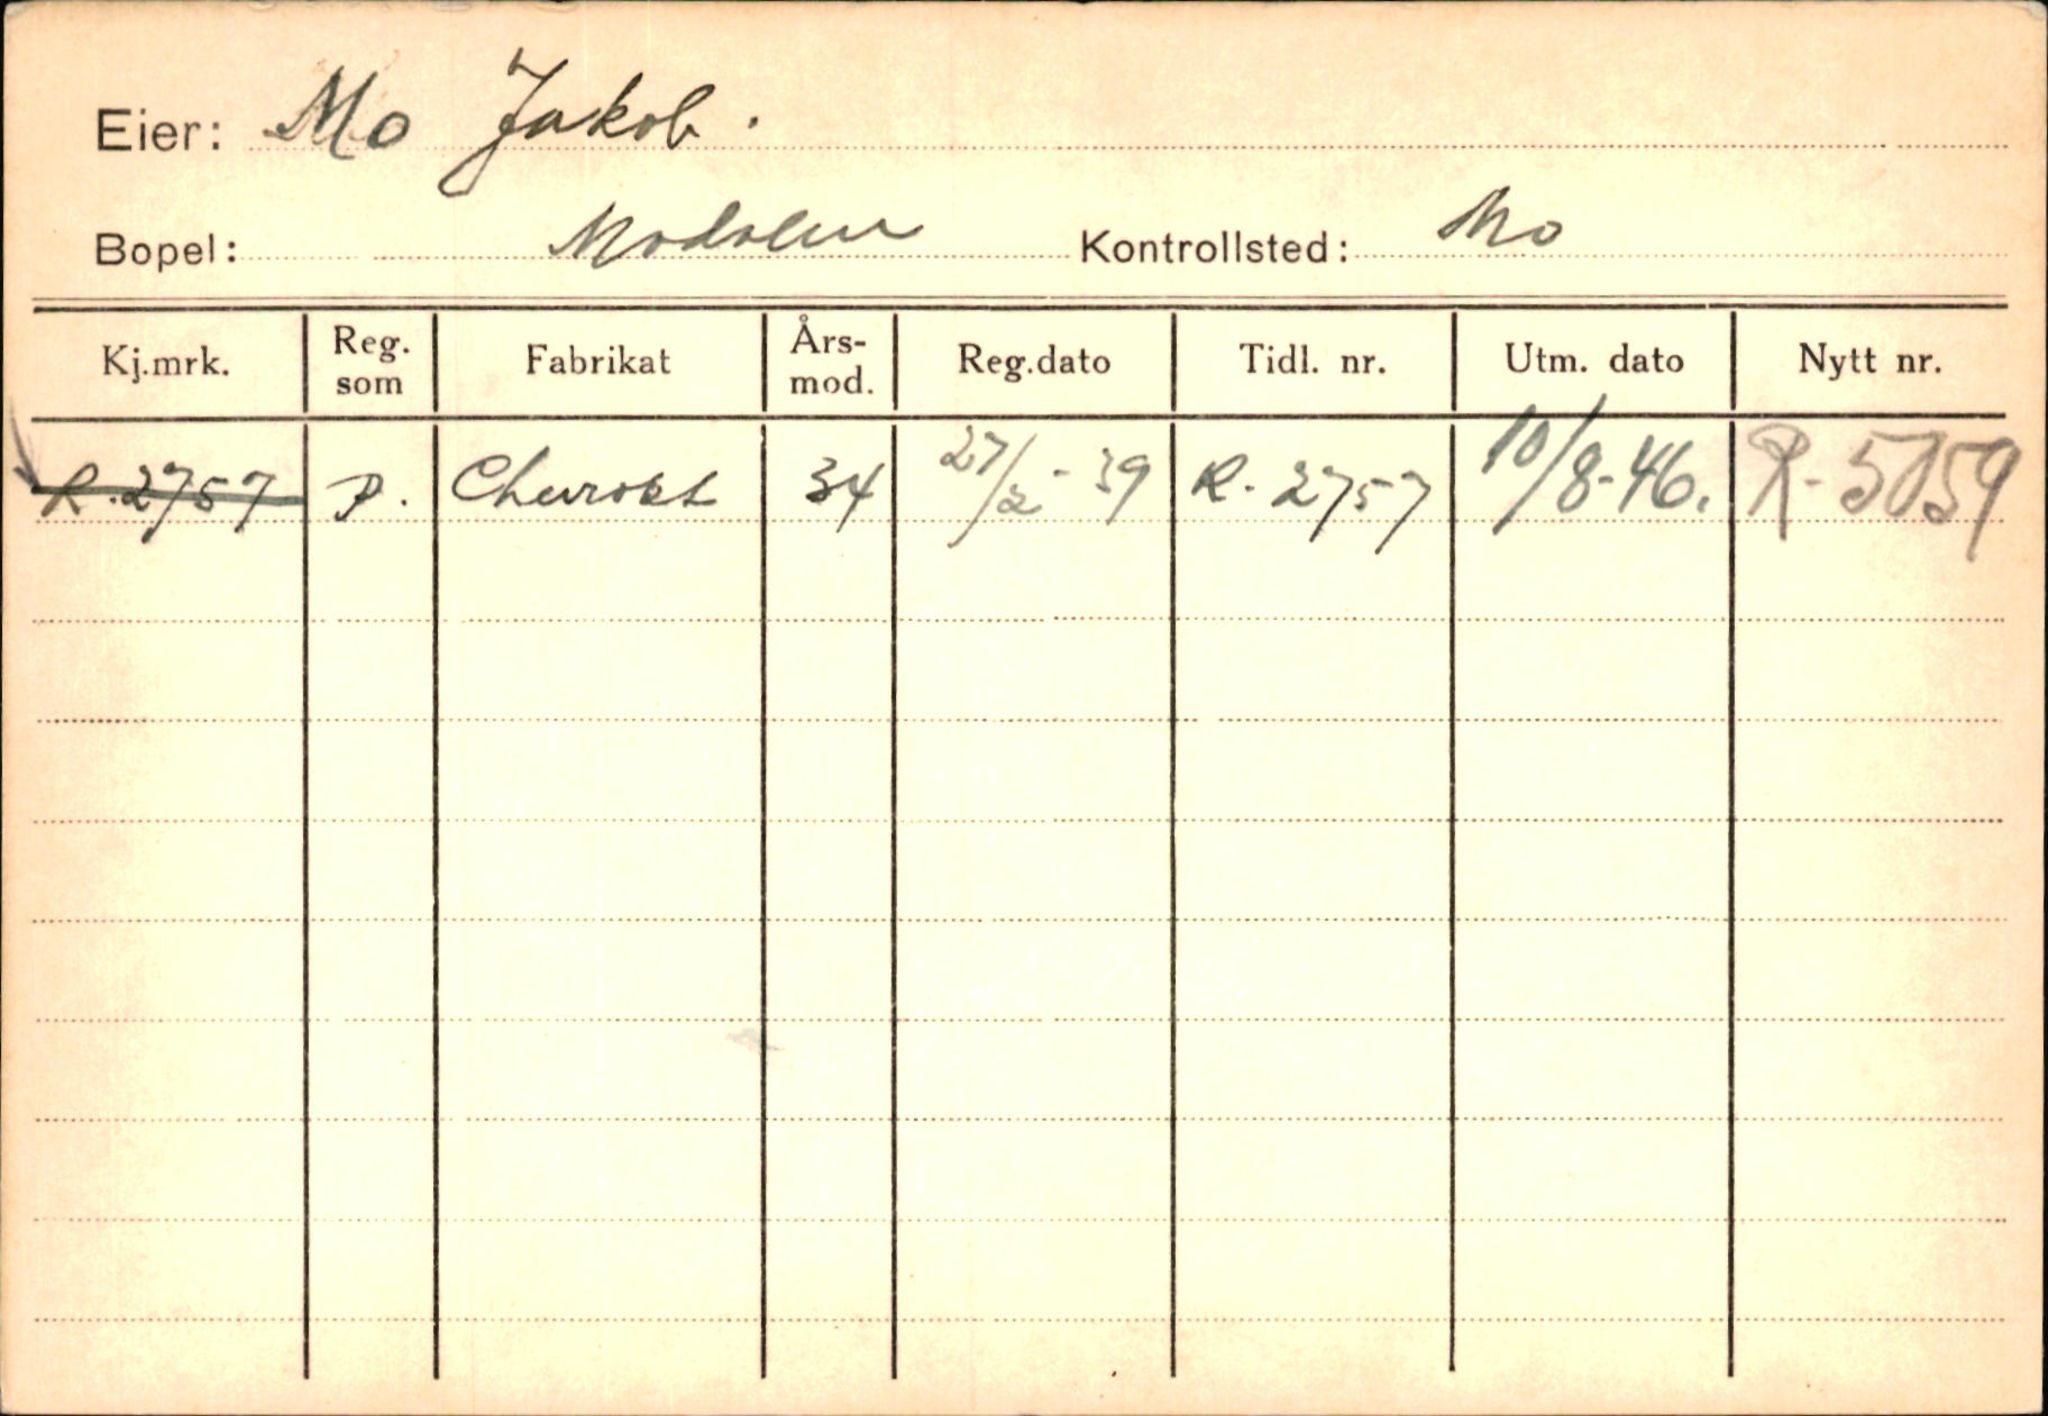 Eier: Mo Jakob.
Bopel: Modalen Kontrollsted: Mo
Kj.mrk. Reg. som Fabrikat Års-mod. Reg.dato Tidl. nr. Utm. dato Nytt nr.
R.2757 P. Chevrolet 34 27/2-39 R.2757 10/8-46. R-5059